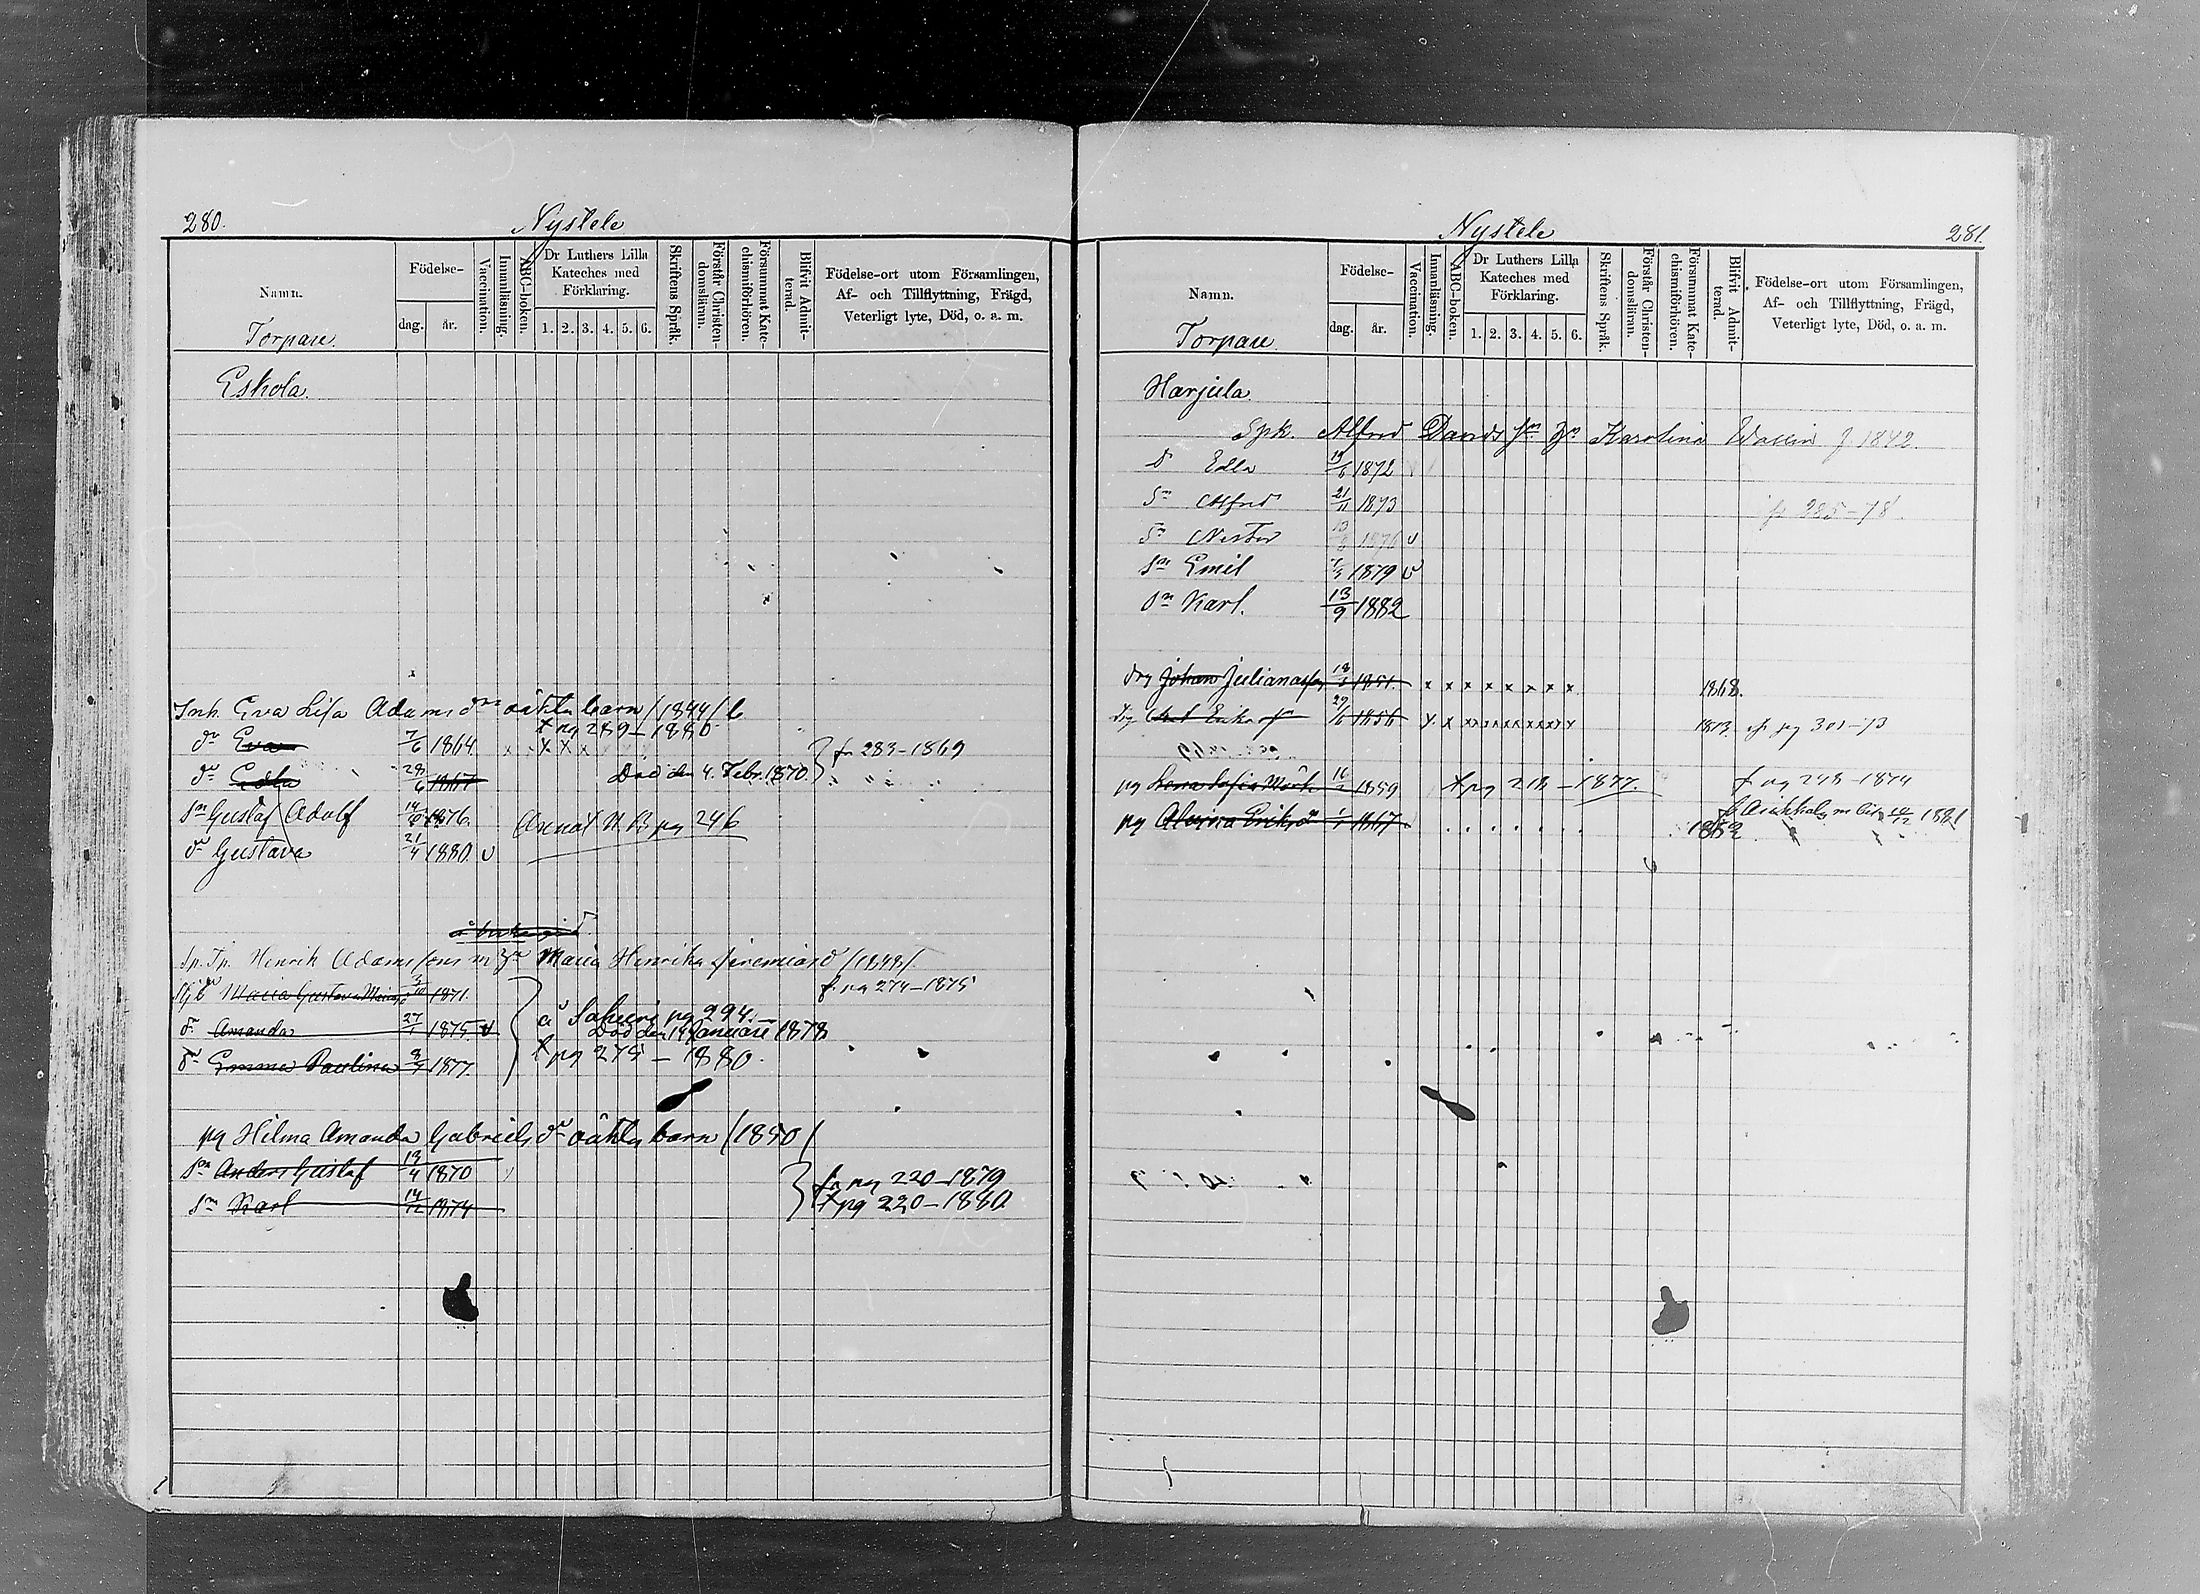 280.
Nystele
Namn.
Torpare.
Födelse-
dag.
år.
Vaccination.
Innanläsning.
ABC-boken.
Dr Luthers Lilla Kateches med Förklaring.
1. 2. 3. 4. 5. 6.
Skriftens Språk.
Förstår Christen-domsläran.
Försummat Kate-chismiförhören.
Blifvit Admit-terad.
Födelse-ort utom Församlingen,
Af- och Tillflyttning, Frägd,
Veterligt lyte, Död, o. a. m.
Eskola.
Inh. Eva Lisa Adamsdr oäkta barn /1844/
t pg 289-1880
dr Eva 7/6 1864 x x x
fr 283-1869
dr Edla 28/6 1867 Död den 4. Febr. 1870.
sn Gustaf Adolf 14/6 1876. N. B. pg 246
dr Gustava 21/4 1880. v
Sp. Tp. Henrik Adamssons m hu Maria Henrika Jeremiasd /1848/
fr pg 274-1875
Maria Gustava 1871.
dr Amanda 27/1 1875 v
å pg 294.
Död den 19 Januari 1878
dr Emma Paulina 1877. t pg 275-1880.
pg Hilma Amanda Gabriels dr oäkta barn /1850/
sn Anders Gustaf 19/4 1870
fr pg 220-1879
sn Karl 14/12 1874
t pg 220-1880
Nystele
281.
Namn.
Torpare
Födelse-
dag.
år.
Vaccination.
Innanläsning.
ABC-boken.
Dr Luthers Lilla Kateches med Förklaring.
1. 2. 3. 4. 5. 6.
Skriftens Språk.
Förstår Christen-domsläran.
Försummat Kate-chismiförhören.
Blifvit Admit-terad.
Födelse-ort utom Församlingen,
Af- och Tillflyttning, Frägd,
Veterligt lyte, Död, o. a. m.
Harjula.
Spk. Alfred Davidssn hu Karolina Wallin f 1842.
d Edla 19/6 1872
sn Alfred 21/11 1873
fr 285-78.
sn Nestor 1876 v
sn Emil 1879 v
sn Karl. 13/9 1882
drg Johan Julianasson 1851. x x x x x x x x 1868.
drg Erikss 29/6 1856 x x x x x x x x x x 1873. pg 301-73
pg Lena Sofia 16/2 1859 t pg 218-1877. fr pg 248-1874
pg Alvina Eriksdr 1/1 1867. 1882 1881